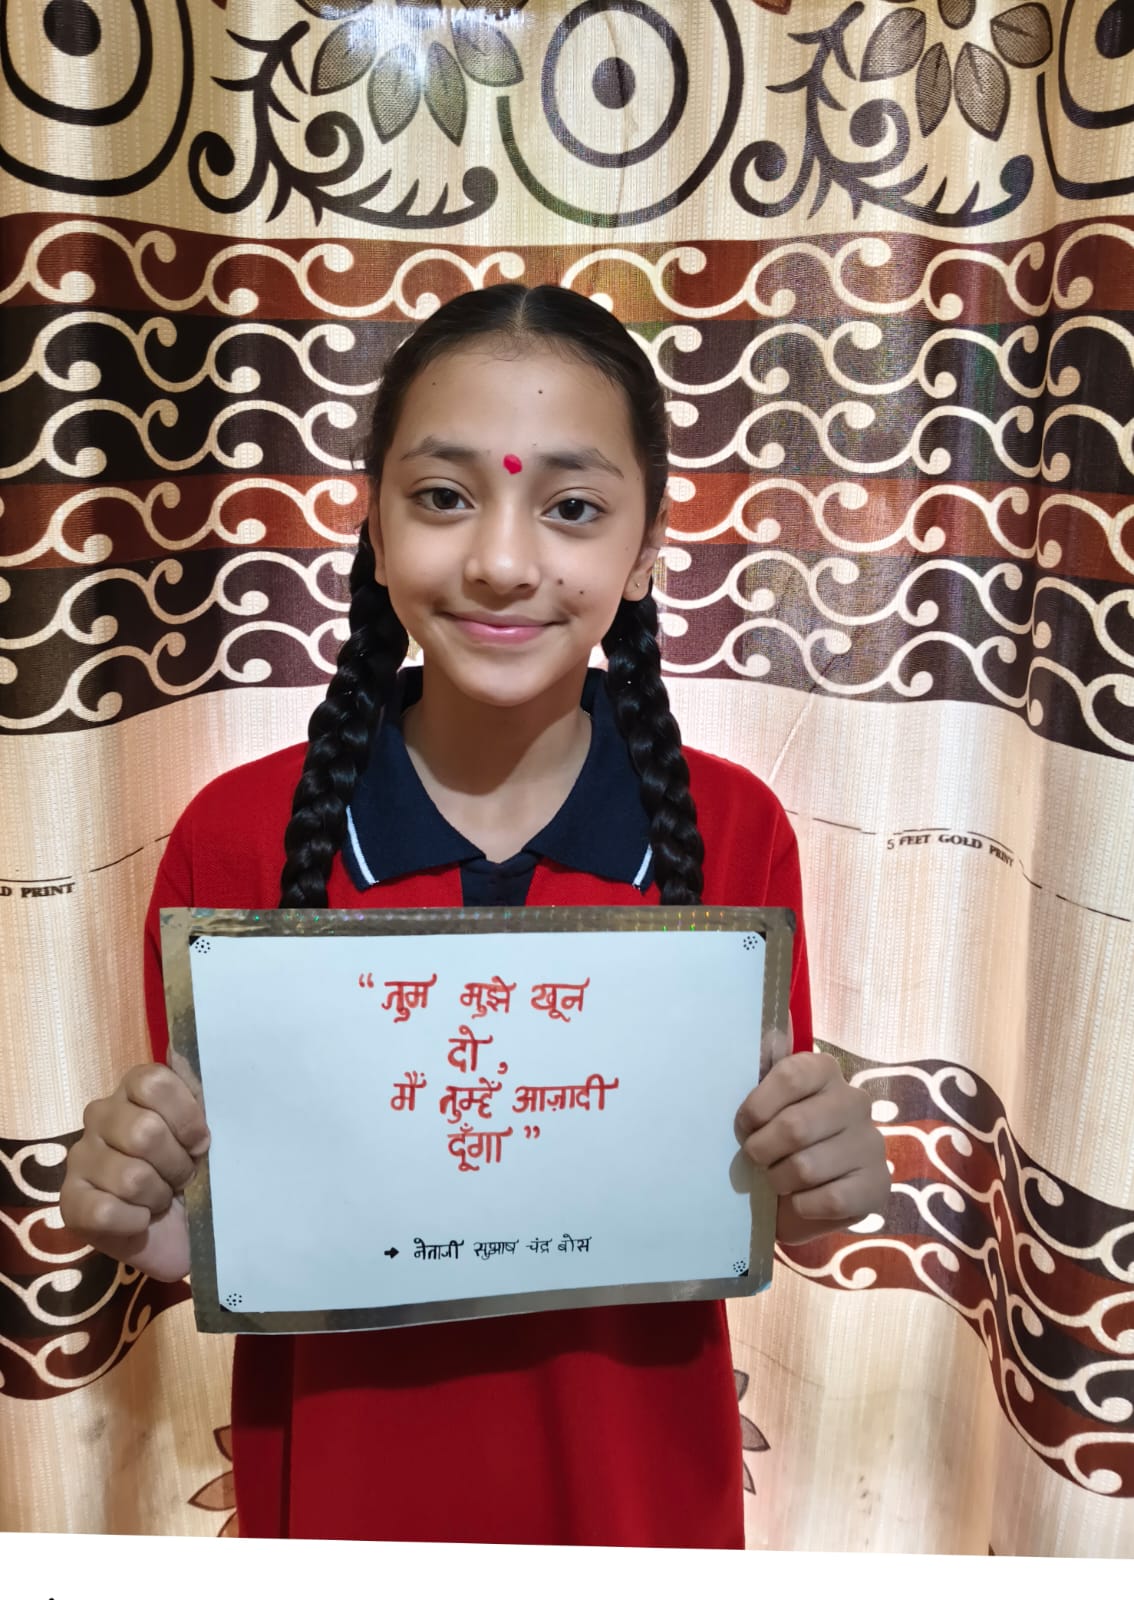 5 FEET GOLD PRINT
D PRINT
“ तुम मुझे खून
दो ,
मैं तुम्हें आज़ादी
दूँगा ”
→ नेताजी सुभाष चंद्र बोस